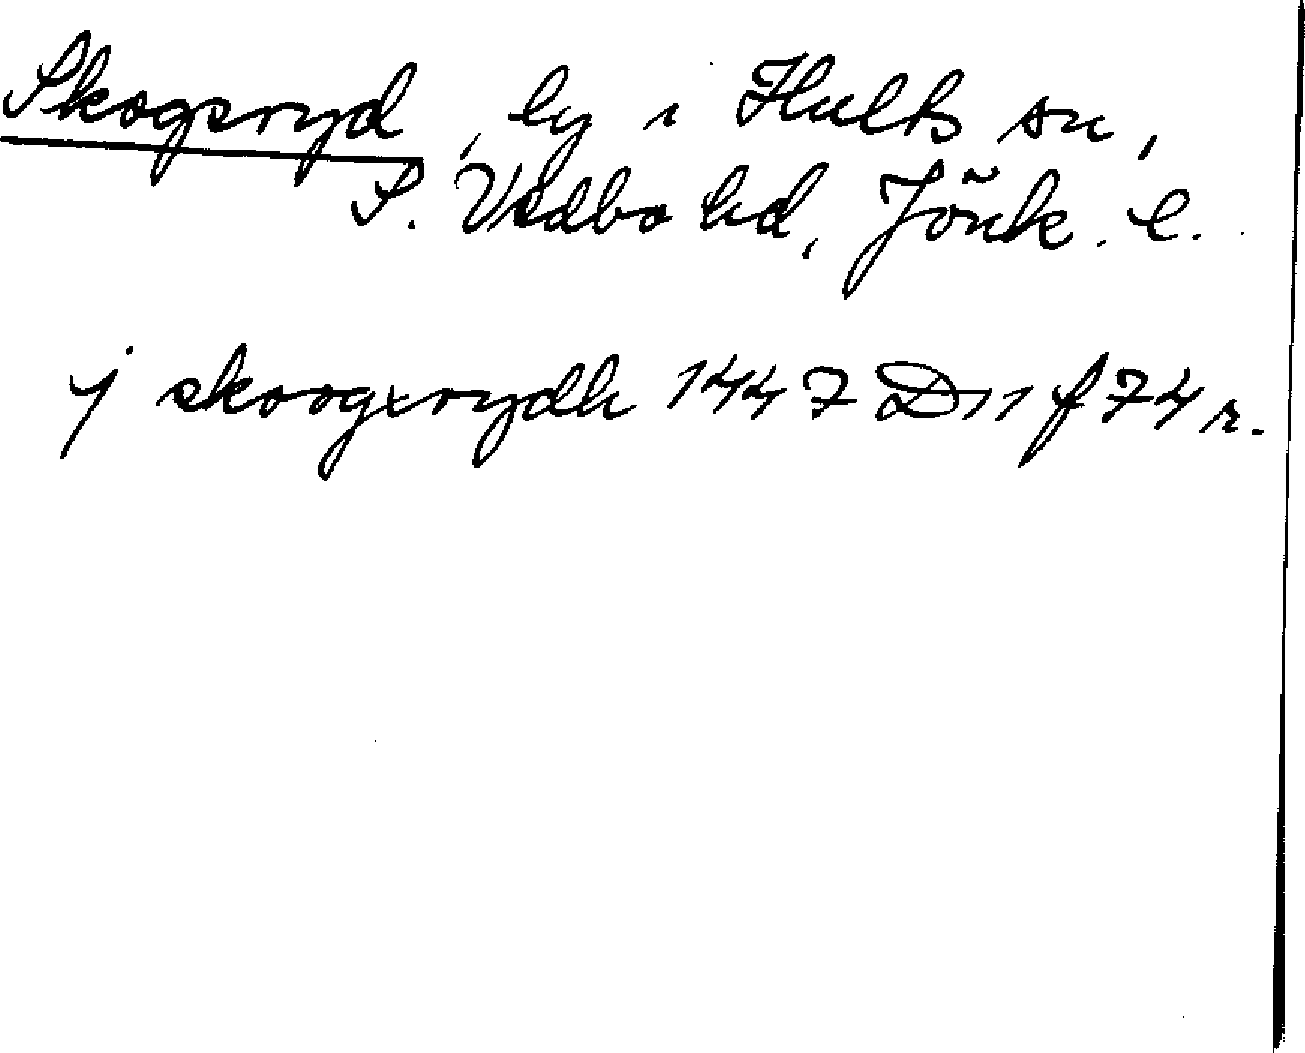 Skogsryd, by i Hults sn,
S. Vedbo hd, Jönk. l.
j skoogxrydh 1447 D 11 f 74 r.